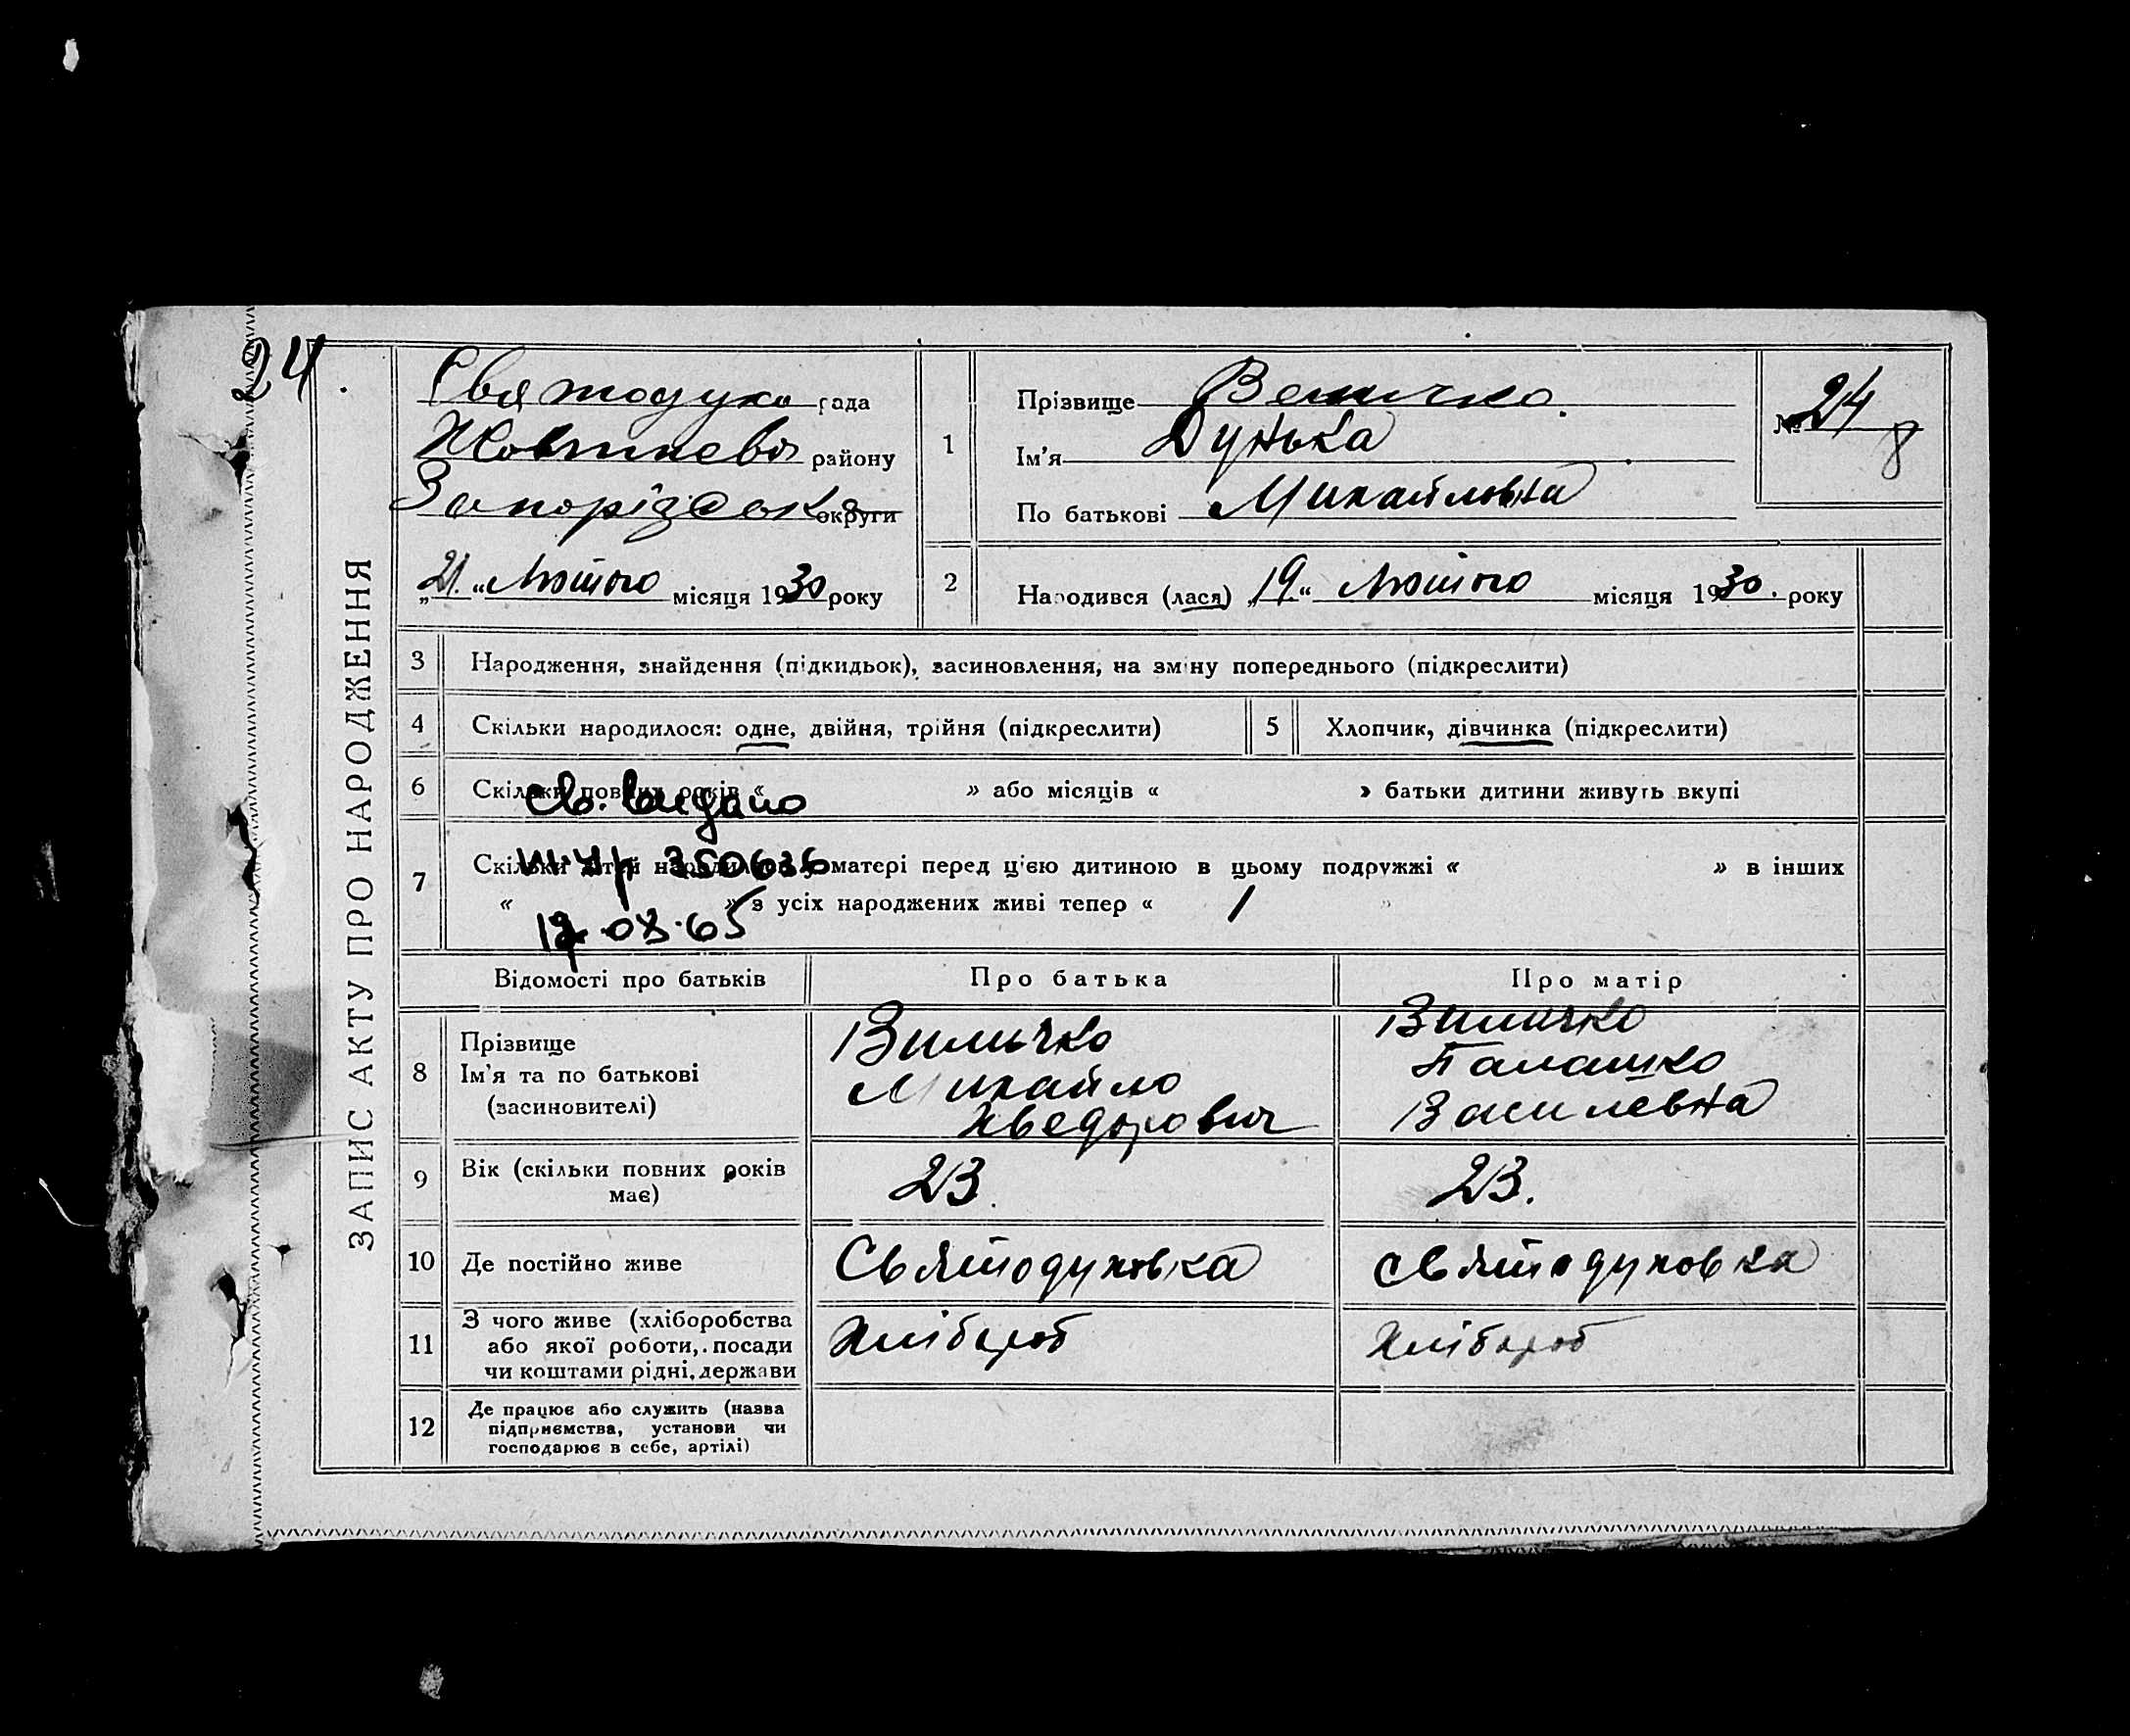 24.
ЗАПИС АКТУ ПРО НАРОДЖЕННЯ
Святодухо рада
Жовтнево району
Запорізськ округи
„21.“ Лютого місяця 1930 року
1
Прізвище Величко.
Ім'я Дунька
По батькові Михайловна
№ 24
8
2
Народився (лася) „19“ Лютого місяця 1930. року
3 Народження, знайдення (підкидьок), засиновлення, на зміну попереднього (підкреслити)
4 Скільки народилося: одне, двійня, трійня (підкреслити)
5 Хлопчик, дівчинка (підкреслити)
6 Скільки повних років « » або місяців « » батьки дитини живуть вкупі
св. видано
7 Скільки дітей народилося у матері перед ц'єю дитиною в цьому подружжі « » в інших
350636
« » з усіх народжених живі тепер « 1
Відомості про батьків Про батька Про матір
8 Прізвище
Ім'я та по батькові
(засиновителі)
Виличко
Михайло
Хведорович
Виличко
Палашко
Василевна
9 Вік (скільки повних років
має)
23.
23.
10 Де постійно живе Святодуховка святодуховка
11 З чого живе (хліборобства
або якої роботи, посади
чи коштами рідні, держави
Хлібороб
Хлібороб
12 Де працює або служить (назва
підприємства, установи чи
господарює в себе, артілі)